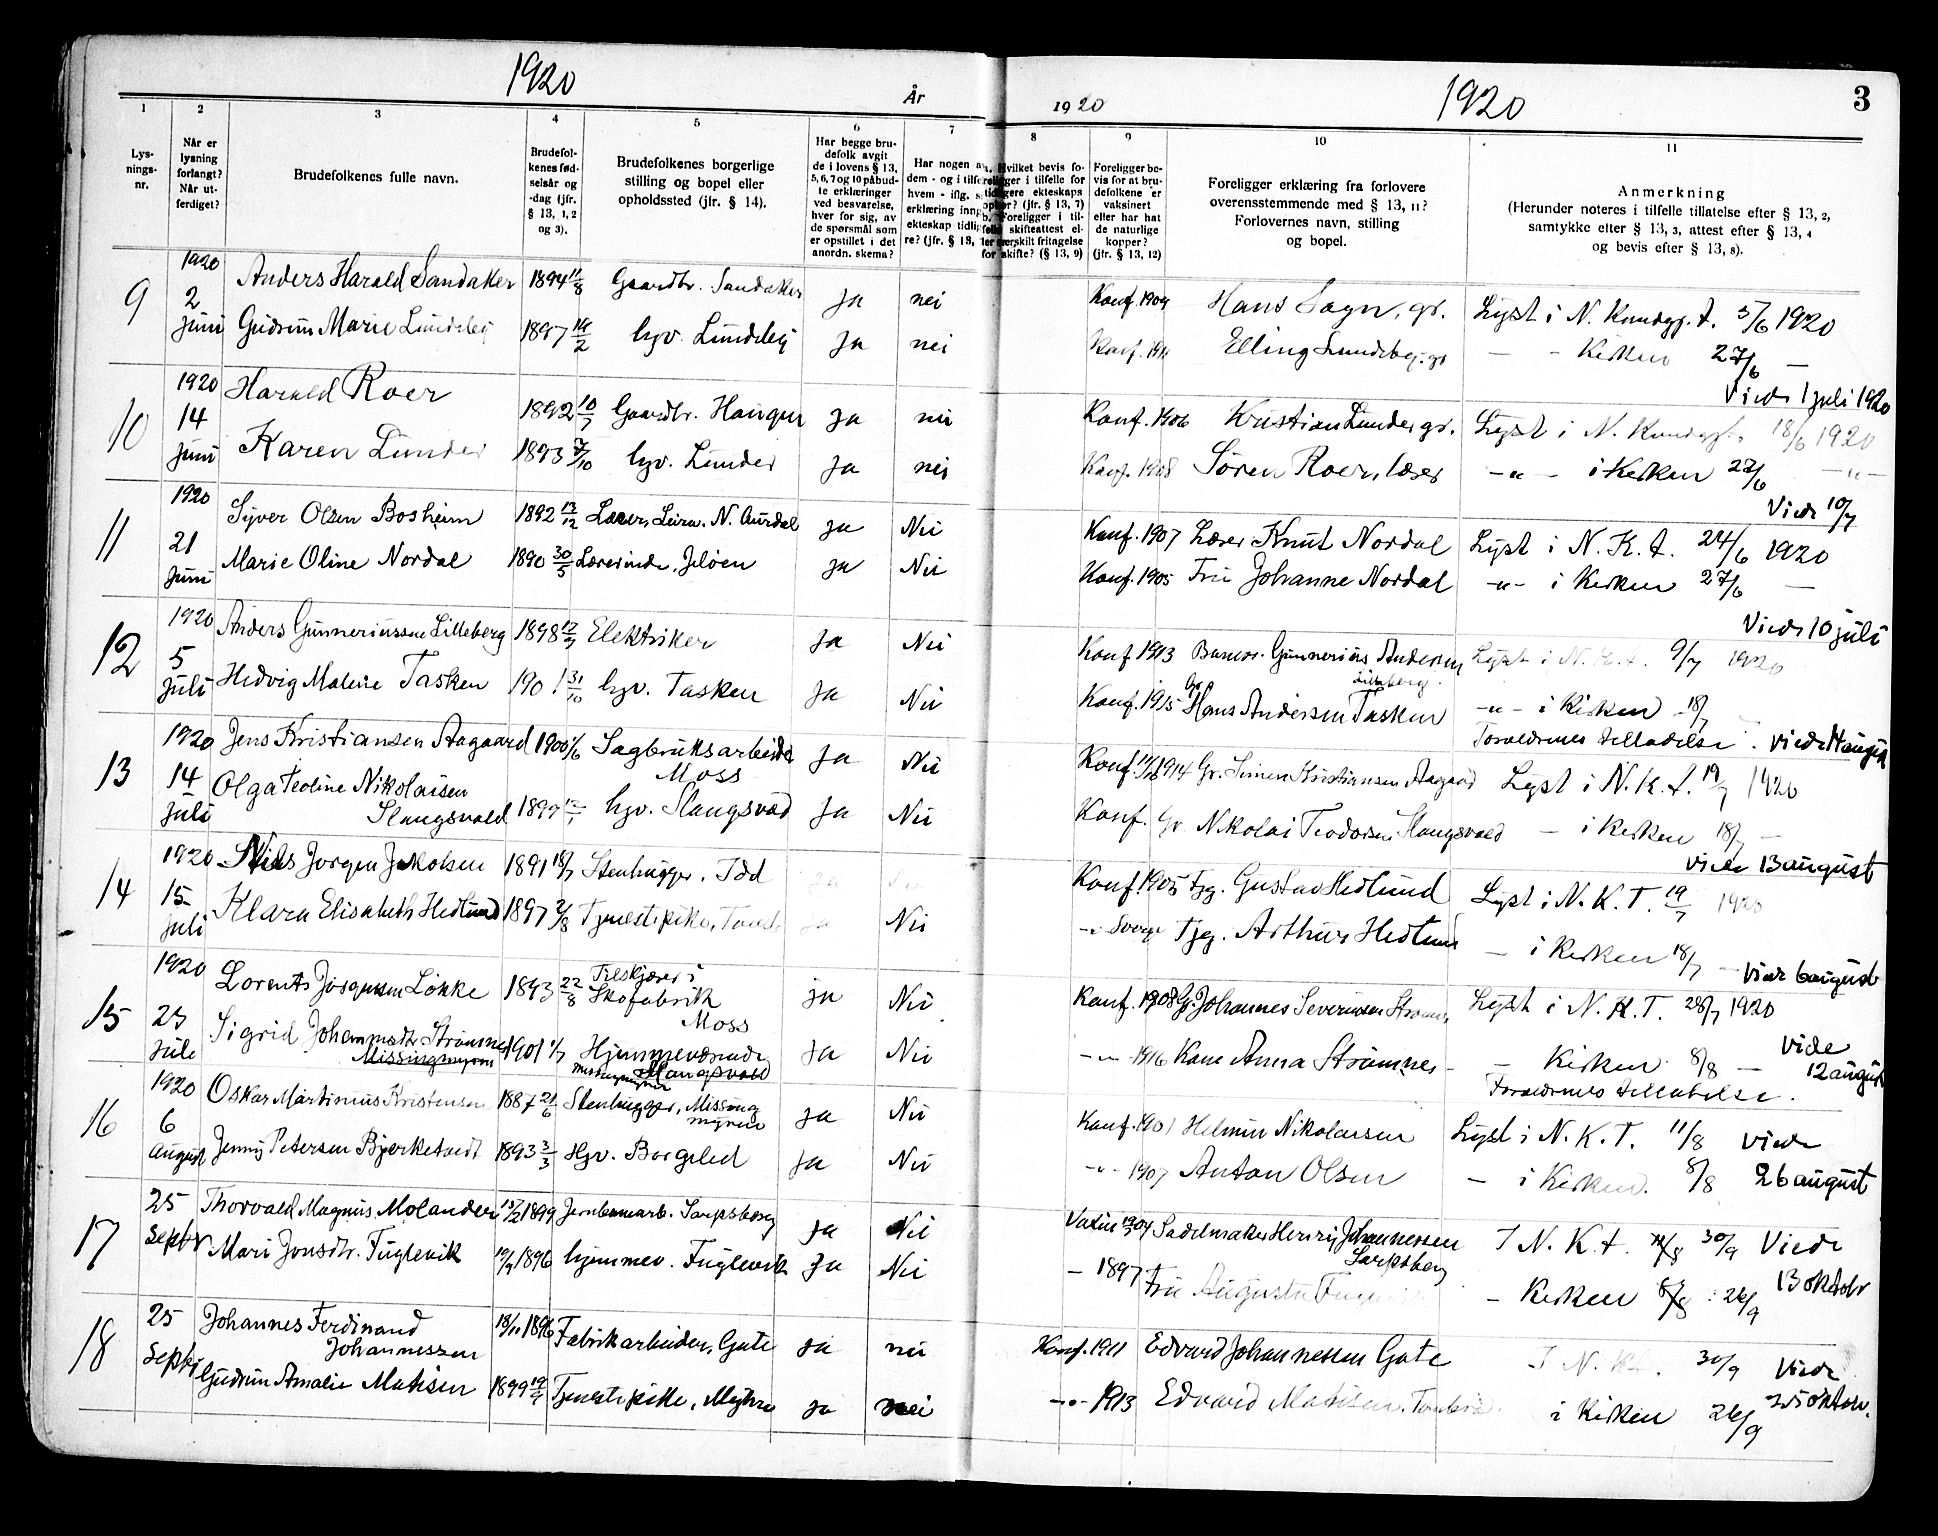 1920
År
1920
1920
3
1 2 3 4 5 6 7 8 9 10 11
Lys-
nings-
nr.
Når er
lysning
forlangt?
Når ut-
ferdiget?
Brudefolkenes fulle navn.
Brudefol-
kenes fød-
selsår og
-dag (jfr.
§ 13, 1, 2
og 3).
Brudefolkenes borgerlige
stilling og bopel eller
opholdssted (jfr. § 14).
Har begge bru-
defolk avgit
de i lovens § 13,
5, 6, 7 og 10 påbud-
te erklæringer
ved besvarelse,
hver for sig, av
de spørsmål som
er opstillet i det
anordn. skema?
Har nogen a
dem - og i tilf
hvem - iflg. s
erklæring inng
ekteskap tidlig
re? (jfr. § 13,
Hvilket bevis fo-
religger i tilfelle for
tidligere ekteskaps
ophør? (jfr. § 13, 7)
b. Foreligger i til-
felle skifteattest el-
ler særskilt fritagelse
for skifte? (§ 13, 9)
Foreligger be-
vis for at bru-
defolkene er
vaksinert
eller har hat
de naturlige
kopper?
(jfr. § 13, 12)
Foreligger erklæring fra forlovere
overensstemmende med § 13, 11?
Forlovernes navn, stilling
og bopel.
Anmerkning
(Herunder noteres i tilfelle tillatelse efter § 13, 2,
samtykke efter § 13, 3, attest efter § 13, 4
og bevis efter § 13, 8).
9 1920 2 juni Anders Harald Sandaker 1894 11/8 Gaardbr. Sandaker ja nei Konf. 1909 Hans Sogn, gr. Lyst i N. Kundgj. t. 3/6 1920
Gudrun Marie Lundeby 1897 19/2 hjv. Lundeby ja nei Konf. 1911 Elling Lundeby, gr - - Kirken 27/6 -
Viede 1 juli 1920
10 1920 14 juni Harald Roer 1892 10/7 Gaardbr. Haugen ja nei Konf. 1906 Kristian Lunder gr. Lyst i N. Kundgj. t. 18/6 1920
Karen Lunder 1893 7/10 hjv. Lunder ja nei Konf. 1908 Søren Roer, lærer -"- i Kirken 27/6 -"-
Viede 10/7
11 1920 21 juni Syver Olsen Bosheim 1892 13/12 Lærer, Leira. N. Aurdal ja Nei Konf. 1907 Lærer Knut Nordal Lyst i N. K. t. 24/6 1920
Marie Oline Nordal 1890 30/5 Lærerinde, Jeløen ja Nei Konf. 1905 Fru Johanne Nordal -"- i Kirken 27/6 -
Viede 10 juli
12 1920 5 juli Anders Gunneriussen Lilleberg 1898 17/9 Elektriker ja Nei Konf 1913 Gunnerius Andersen Lilleberg Lyst i N. K. t. 9/7 1920
Hedvig Malene Tasken 1901 31/10 hjv. Tasken ja Nei Konf. 1915 Gr. Hans Andersen Tasken -"- i Kirken 18/7
Foreldrenes tilladelse. Viede 14 august
13 1920 14 juli Jens Kristiansen Aagaard 1900 1/6 Sagbruksarbeider Moss ja Nei Konf. 1914 Gr. Simen Kristiansen Aagaard Lyst i N. K. t. 19/7 1920
Olga Teoline Nikolaisen Slangsvold 1899 hjv. Slangsvold ja Nei Konf. Gr Nikolai Teodorsen Slangsvold - i Kirken 18/7 -
Viede 13 august
14 1920 15 juli Nils Jørgen Jakobsen 1891 18/7 Stenhugger. Idd Konf. 1905 Tjg. Gustav Hedlund Lyst i N. K. T. 19/7 1920
Klara Elisabeth Hedlund 1897 2/8 Tjenestepike, Nei -"- Sverge Tjg. Arthur Hedlund - i Kirken 18/7 -
Viede 6 august
15 1920 23 juli Lorents Jørgensen Løkke 1893 22/8 Tilskjærer i Skofabrik Moss ja Nei Konf. 1908 Gr. Johannes Severinsen Strømnes Lyst i N. K. T. 28/7 1920
Sigrid Johannesdtr. Strømnes Missingmyren 1901 1/7 Hjemmeværende Missingmyren Slangsvold ja Nei -"- 1916 Kone Anna Strømnes - Kirken 8/8 -
Viede 12 august
Foreldrenes tilladelse.
16 1920 6 August Oskar Martinius Kristensen 1887 21/6 Stenhugger, Missingmyren ja Nei Konf. 1901 Helmin Nikolaisen Lyst i N. K. T. 11/8 Viede
Jenny Petersen Bjerketvedt 1893 3/3 Hjv. Borgeled ja Nei -"- 1907 Anton Olsen - i Kirken. 8/8 26 august
17 25 Septbr Thorvald Magnus Molander 15/2 1899 Jernbanearb. Sarpsborg ja Nei Vaxin 1904 Sadelmaker Henry Johannessen Sarpsborg I N. K. t. 30/9 Viede
Mari Jonsdtr. Fuglevik 19/9 1896 hjemmev. Fuglevik ja Nei - 1897 Fru Augusta Fuglevik - Kirken 8/8 : 26/9 13 oktobr
18 25 Septbr Johannes Ferdinand Johannessen 18/11 1896 Fabrikarbeider, Gate ja nei Konf. 1911 Edvard Johannessen Gate I N. K. t. 30/9 Viede
Gudrun Amalie Matisen 1899 19/9 Tjenestepike, Myhre ja nei -"- 1913 Edvard Matisen, i Kirken 26/9 25 oktobr.